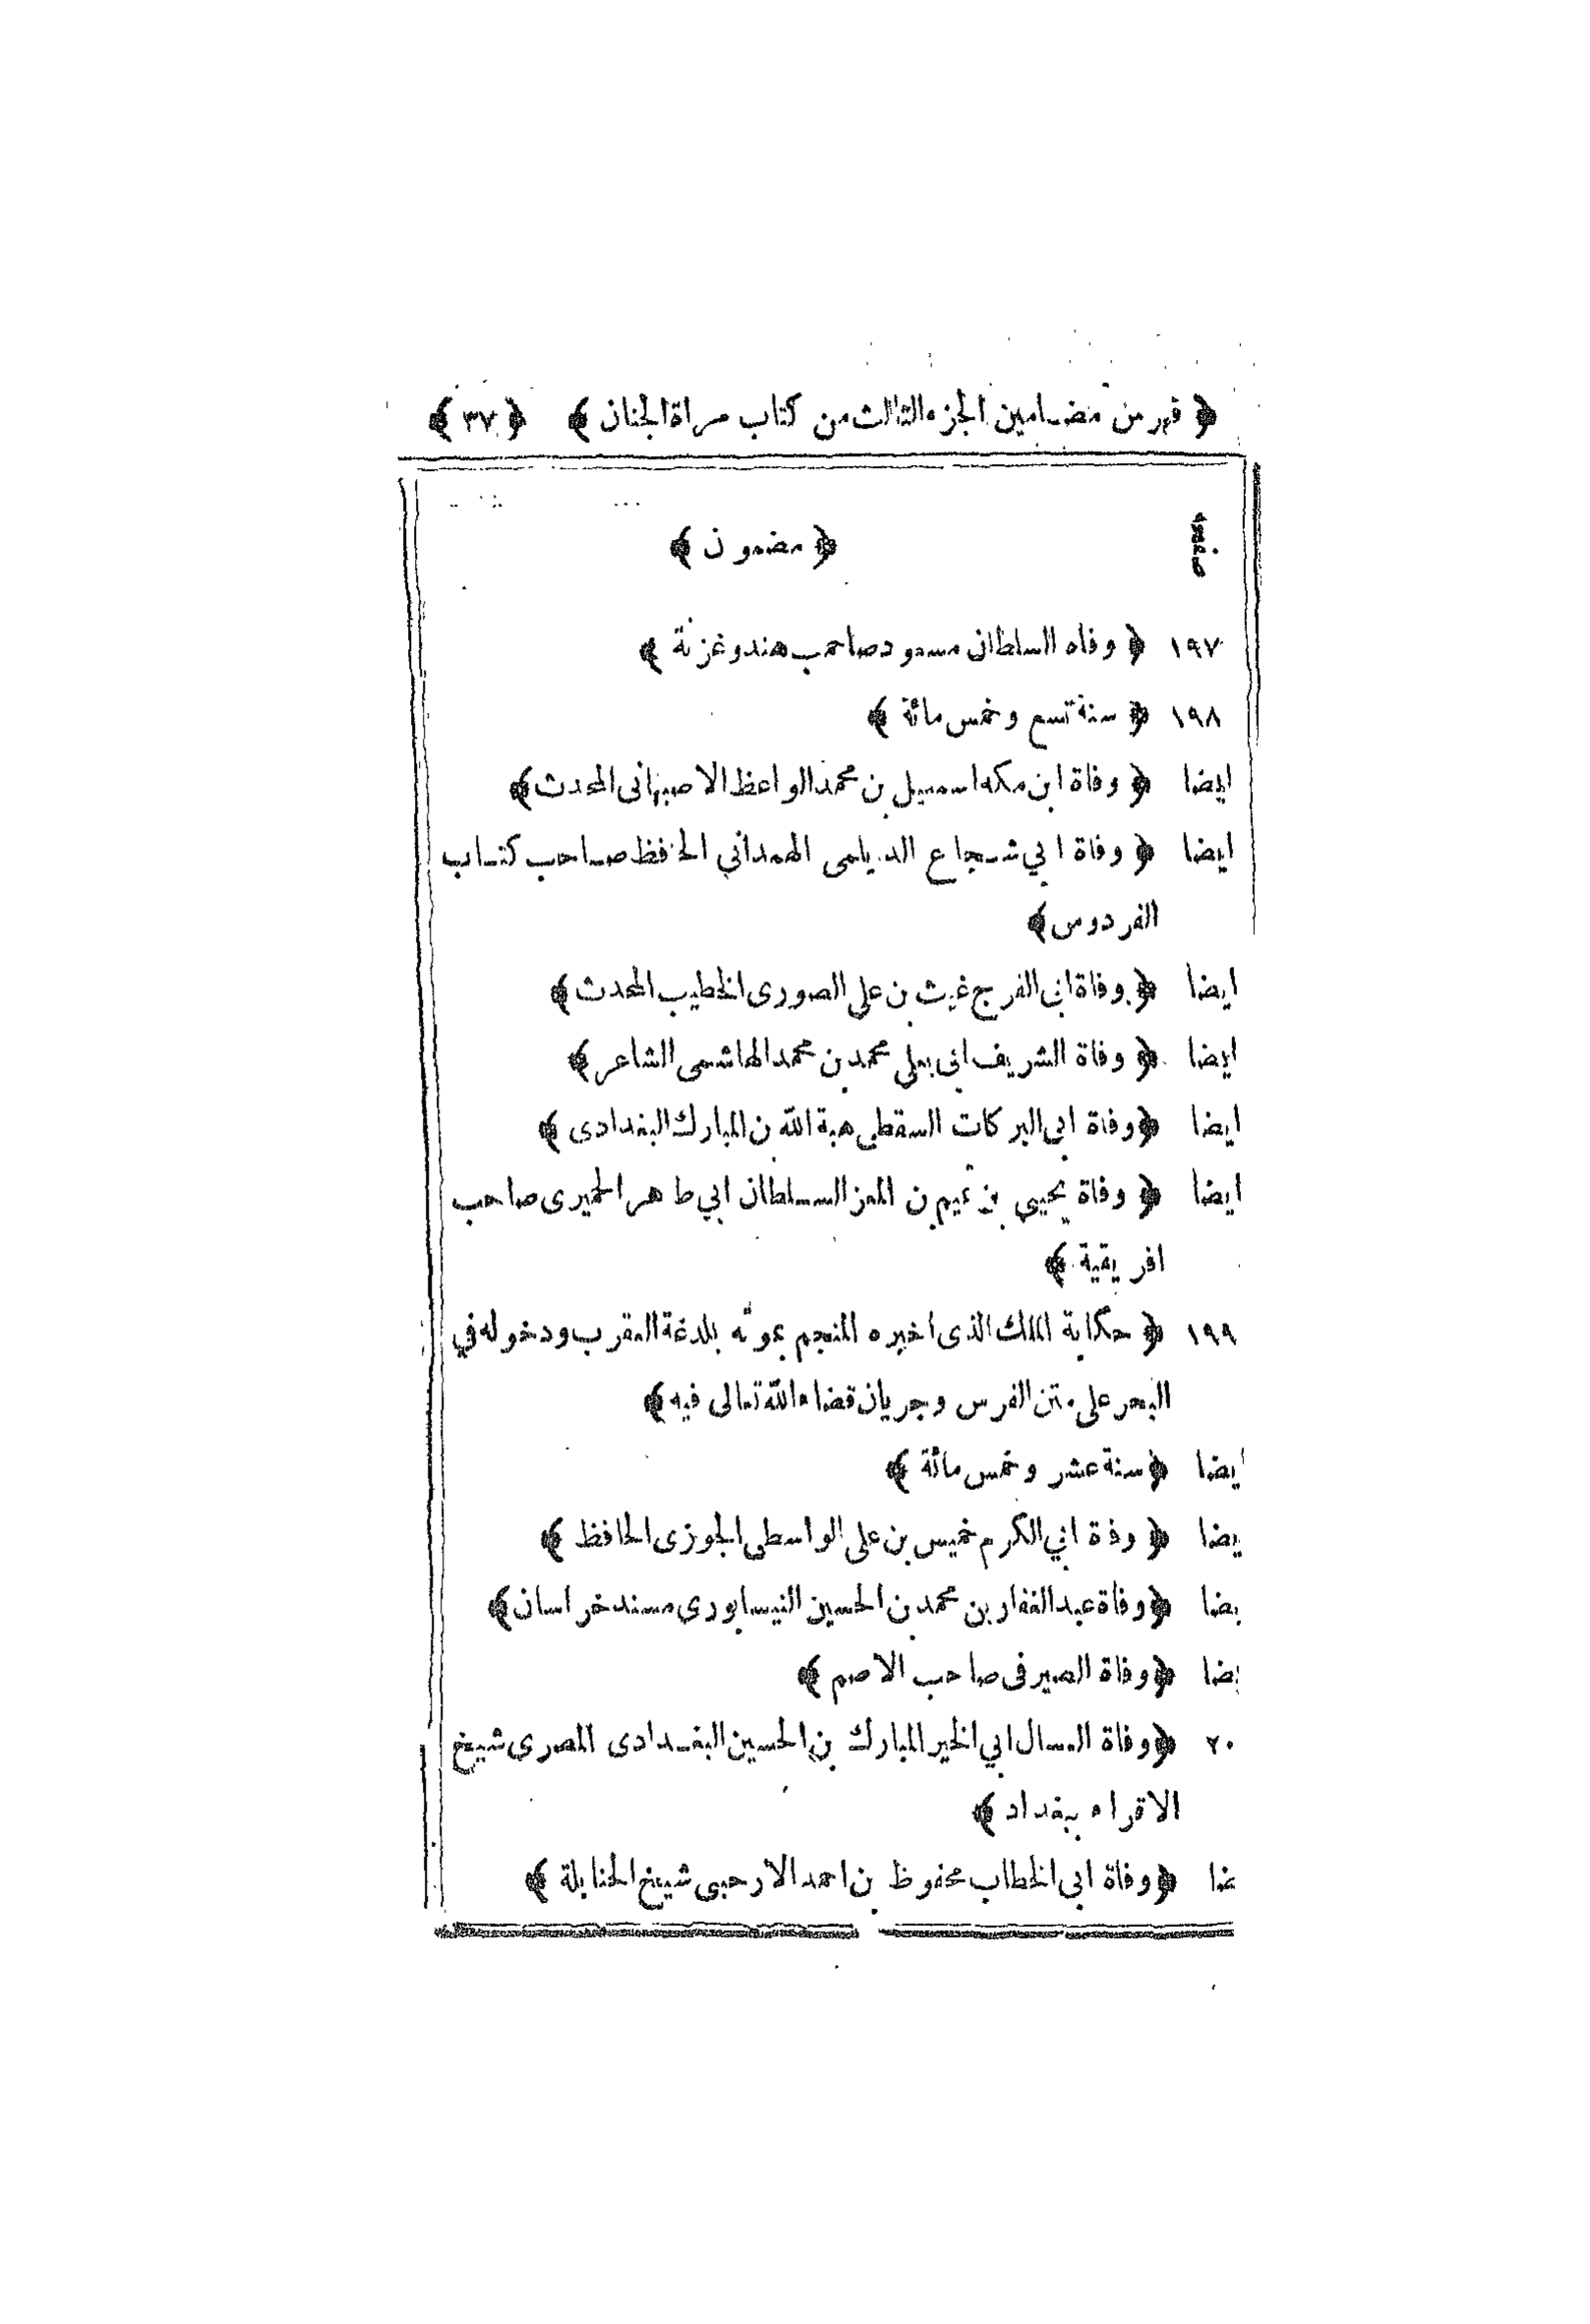 ﴿ فهرس مضامين الجزء الثالث من كتاب مرآة الجنان ﴾ ﴿ ٣٧ ﴾
صفحه ﴿ مضمون ﴾
١٩٧ ﴿ وفاه السلطان مسعود صاحب هند وغزنة ﴾
١٩٨ ﴿ سنة تسع وخمس مائة ﴾
ايضا ﴿ وفاة ابن مكه اسمعيل بن محمد الواعظ الاصبهانى المحدث ﴾
ايضا ﴿ وفاة ابي شجاع الديلمى الهمداني الحافظ صاحب كتاب
الفردوس ﴾
ايضا ﴿ وفاة ابى الفرج غيث بن على الصورى الخطيب المحدث ﴾
ايضا ﴿ وفاة الشريف ابى يعلى محمد بن محمد الهاشمى الشاعر ﴾
ايضا ﴿ وفاة ابى البركات السقطى هبة الله بن المبارك البغدادى ﴾
ايضا ﴿ وفاة يحيى بن تميم بن المعز السلطان ابي طاهر الحميرى صاحب
افريقية ﴾
١٩٩ ﴿ حكاية الملك الذى اخبره المنجم بموته بلدغة العقرب ودخوله في
البحر على متن الفرس وجريان قضاء الله تعالى فيه ﴾
ايضا ﴿ سنة عشر وخمس مائة ﴾
يضا ﴿ وفاة ابي الكرم خميس بن على الواسطى الجوزى الحافظ ﴾
يضا ﴿ وفاة عبد الغفار بن محمد بن الحسين النيسابوري مسند خراسان ﴾
يضا ﴿ وفاة الصيرفى صاحب الاصم ﴾
٢٠ ﴿ وفاة العسال ابي الخير المبارك بن الحسين البغدادى المصرى شيخ
الاقراء ببغداد ﴾
ضا ﴿ وفاة ابى الخطاب محفوظ بن احمد الارحبى شيخ الحنابلة ﴾